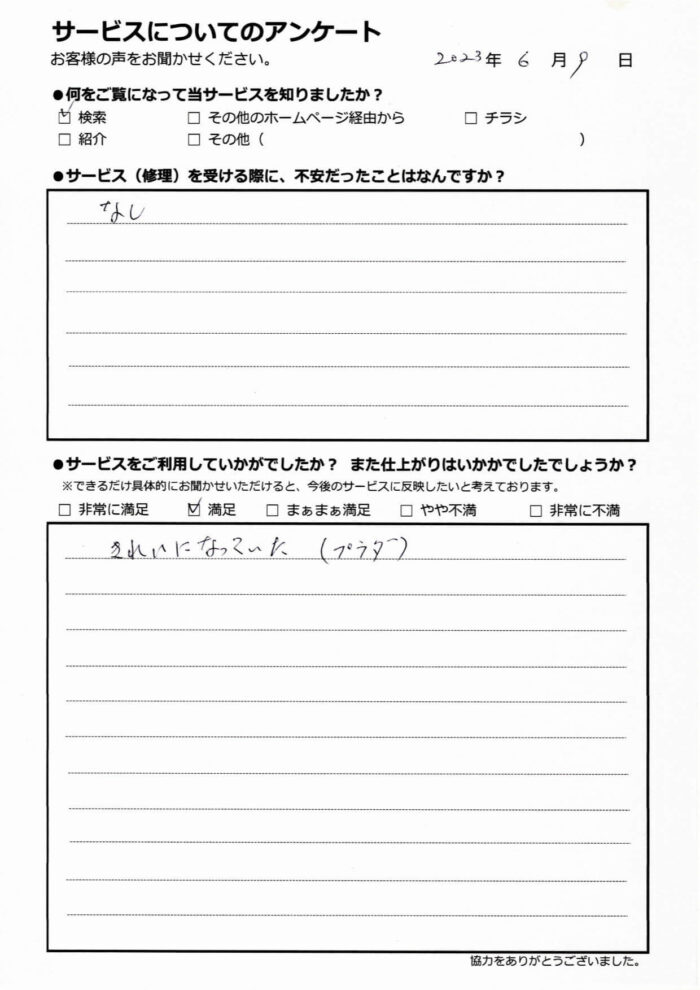 サービスについてのアンケート
お客様の声をお聞かせください。 2023年 6 月 9 日
●何をご覧になって当サービスを知りましたか？
☑ 検索 □ その他のホームページ経由から □ チラシ
□ 紹介 □ その他（ ）
●サービス（修理）を受ける際に、不安だったことはなんですか？
なし
●サービスをご利用していかがでしたか？ また仕上がりはいかかでしたでしょうか？
※できるだけ具体的にお聞かせいただけると、今後のサービスに反映したいと考えております。
□ 非常に満足 ☑ 満足 □ まぁまぁ満足 □ やや不満 □ 非常に不満
きれいになっていた （プラダ）
協力をありがとうございました。